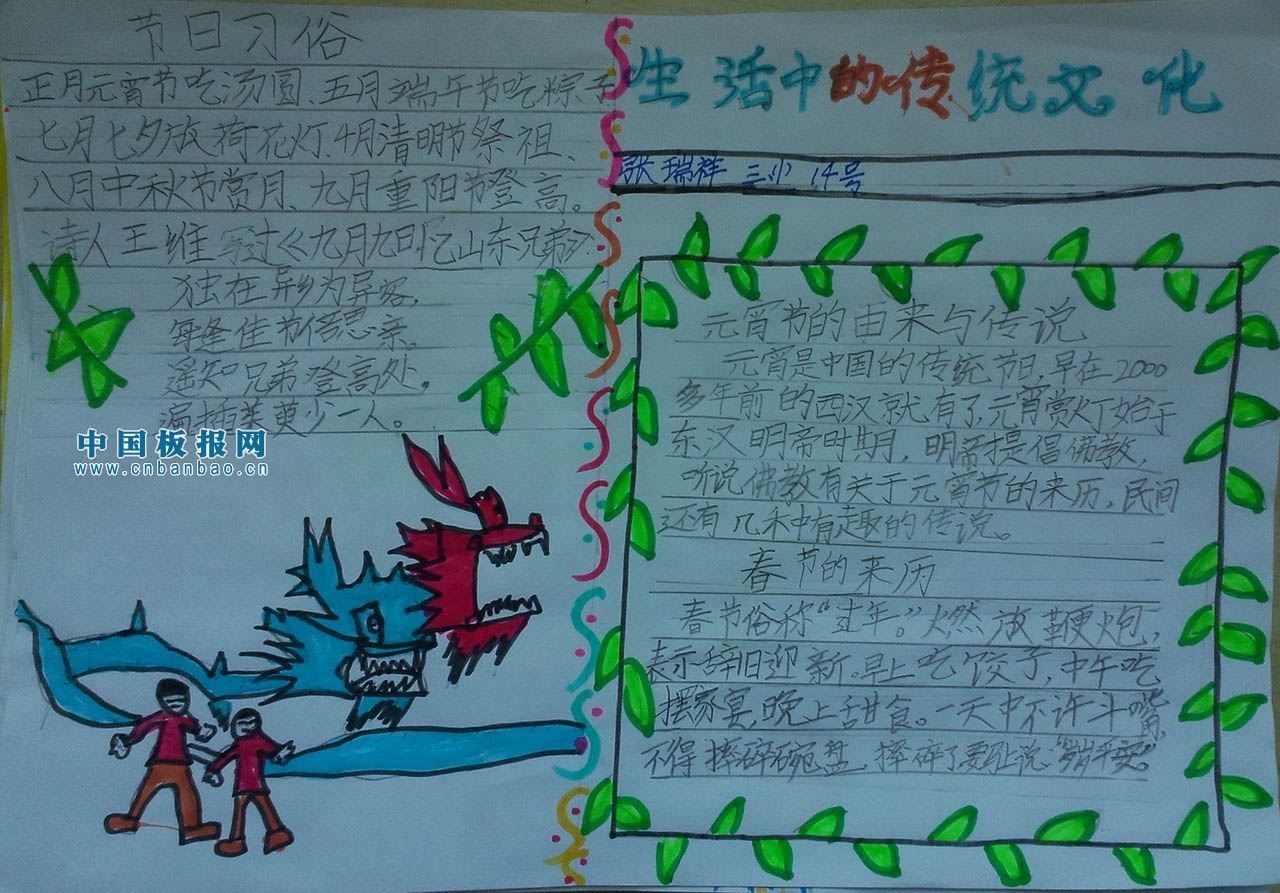 节日习俗
正月元宵节吃汤圆、五月端午节吃粽子
七月七夕放荷花灯、4月清明节祭祖、
八月中秋节赏月、九月重阳节登高。
诗人王维写过《九月九日忆山东兄弟》:
独在异乡为异客,
每逢佳节倍思亲。
遥知兄弟登高处,
遍插茱萸少一人。
中国板报网
www.cnbanbao.cn
生活中的传统文化
张瑞祥 三小 14号
元宵节的由来与传说
元宵是中国的传统节日,早在2000
多年前的西汉就有了,元宵赏灯始于
东汉明帝时期,明帝提倡佛教,
听说佛教有关于元宵节的来历,民间
还有几种有趣的传说。
春节的来历
春节俗称“过年。”燃放鞭炮,
表示辞旧迎新。早上吃饺子,中午吃
摆家宴,晚上甜食。一天中不许斗嘴,
不得摔碎碗盘,摔碎了要说“岁岁平安”